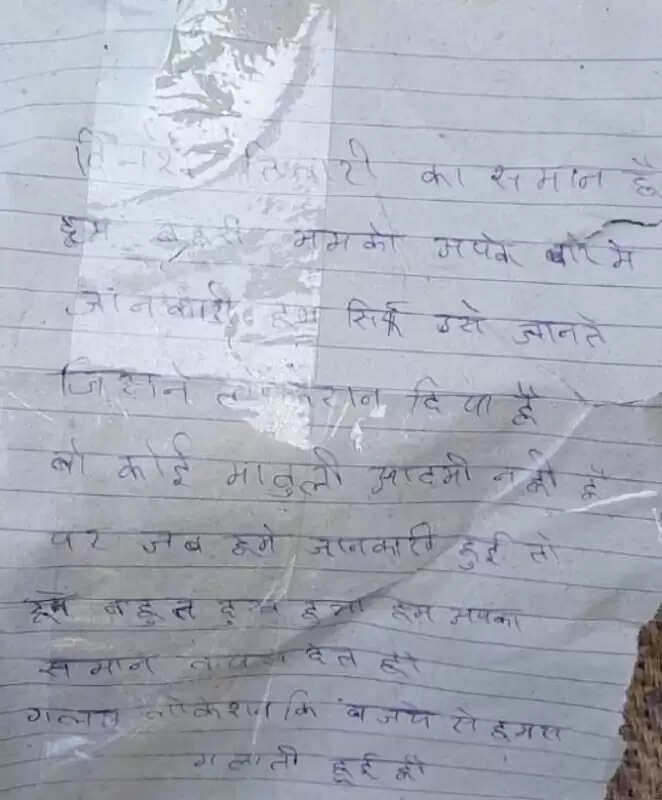 दिनेश तिवारी का समान है
हम बहरी हमको अपके बारे मे
जानकारी हम सिर्फ उसे जानते
जिसने लोकेशन दिया है
बो कोई मामुली आदमी नही है
पर जब हमे जानकारी हुई तो
हमे बहुत दुख हुआ हम अपका
समान वापस देते है
गलत लोकेशन कि बजये से हमसे
गलाती हुई है